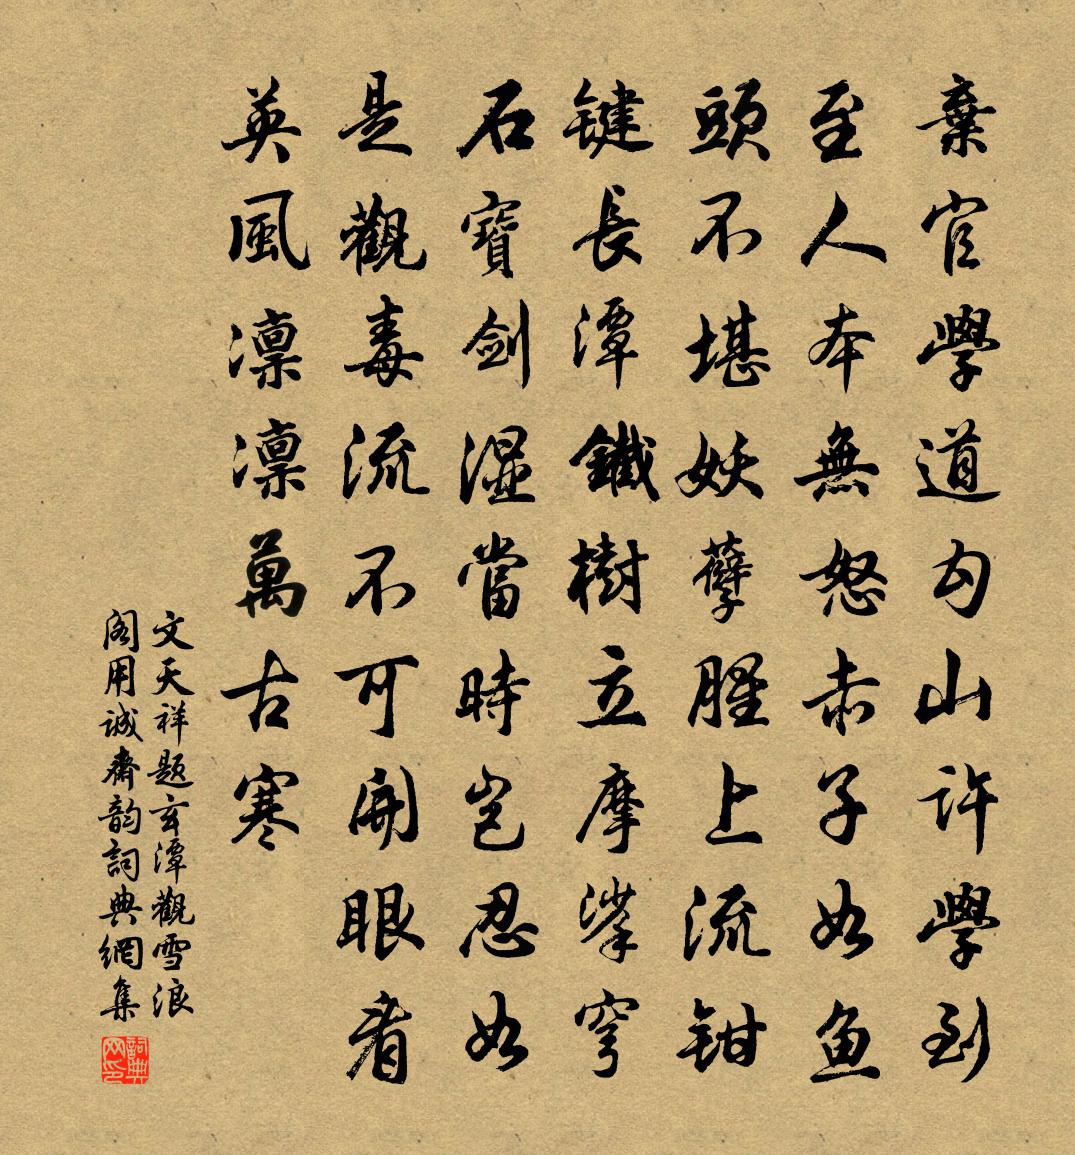 棄官學道勾山許學到
至人本無怒赤子如魚
頭不堪妖孽腥上流鉗
键長潭鐵樹立摩挲穹
石寶劍濕當時豈忍如
是觀毒流不可開眼看
英風凛凛萬古寒
文天祥题玄潭觀雪浪
阁用诚齋韵詞典網集